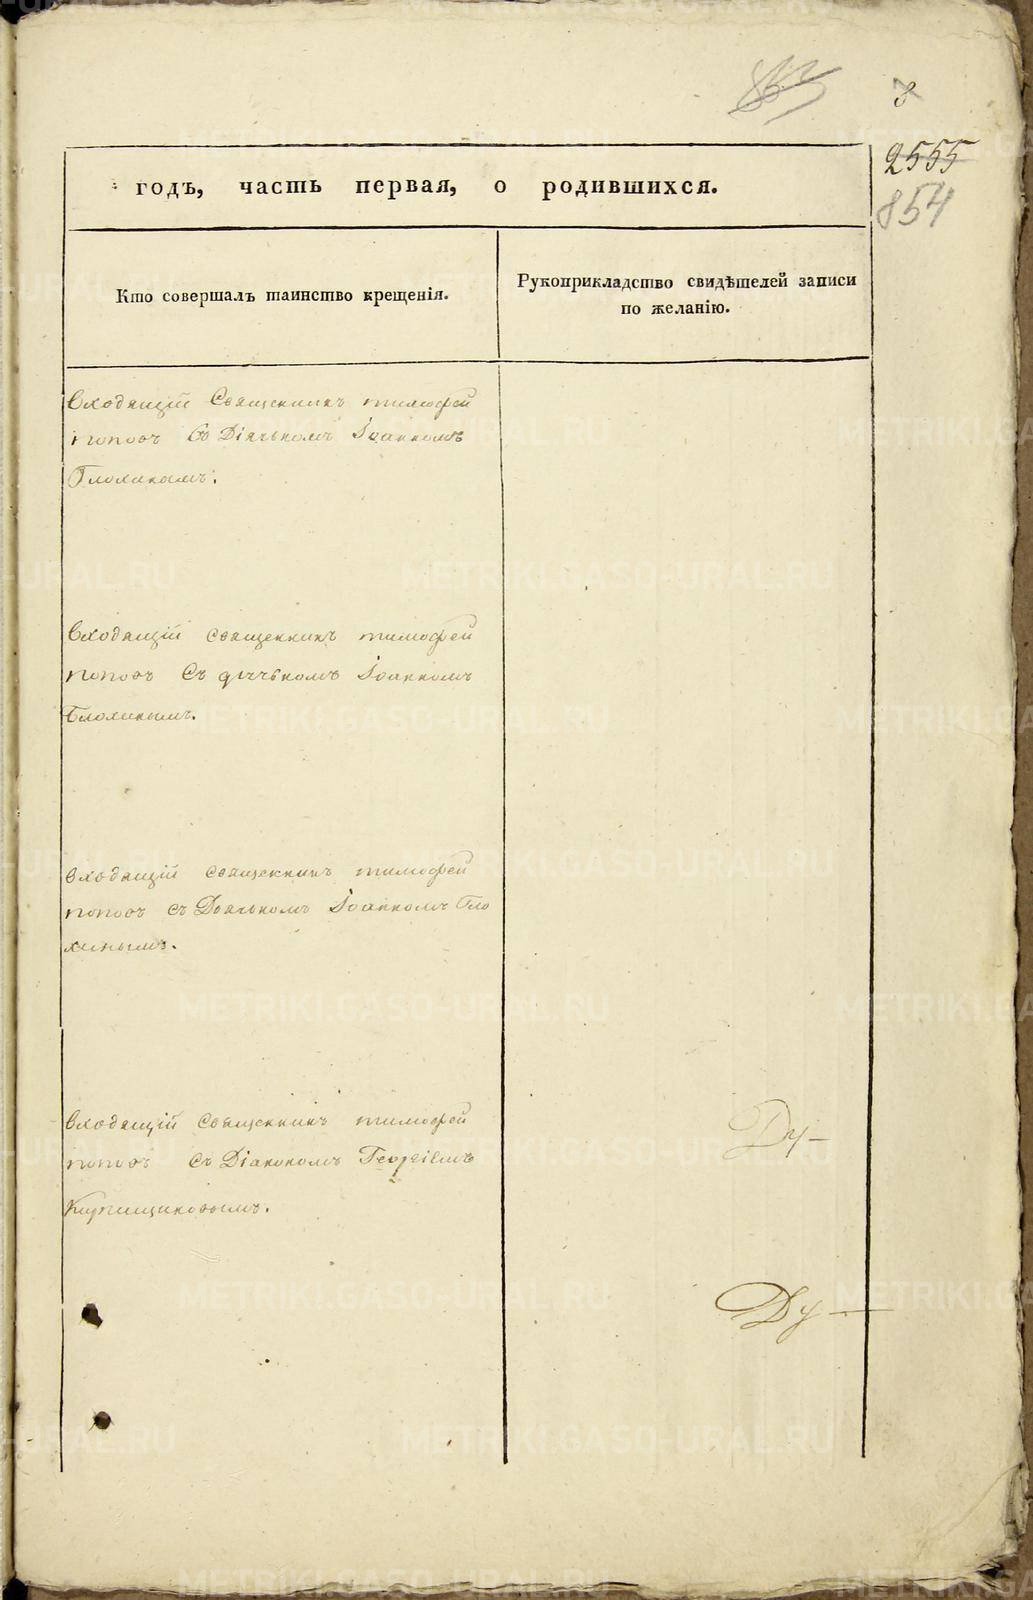 8
2555
854
годъ, часть первая, о родившихся.
Кто совершалъ таинство крещенія.
Рукоприкладство свидѣтелей записи
по желанію.
Входящій Священникъ тимофей
попов Со Діячькомъ Іоанномъ
Блохинымъ.
Входящій священникъ тимофей
попов Съ дьячькомъ Іоанномъ
Блохинымъ.
входящій священникъ тимофей
попов съ Дьячькомъ Іоанномъ Бло
хинымъ.
входящій Священникъ тимофей
попов Съ Діакономъ Георгіемъ
Кирпищиковымъ.
Ду
Ду
METRIKI.GASO-URAL.RU